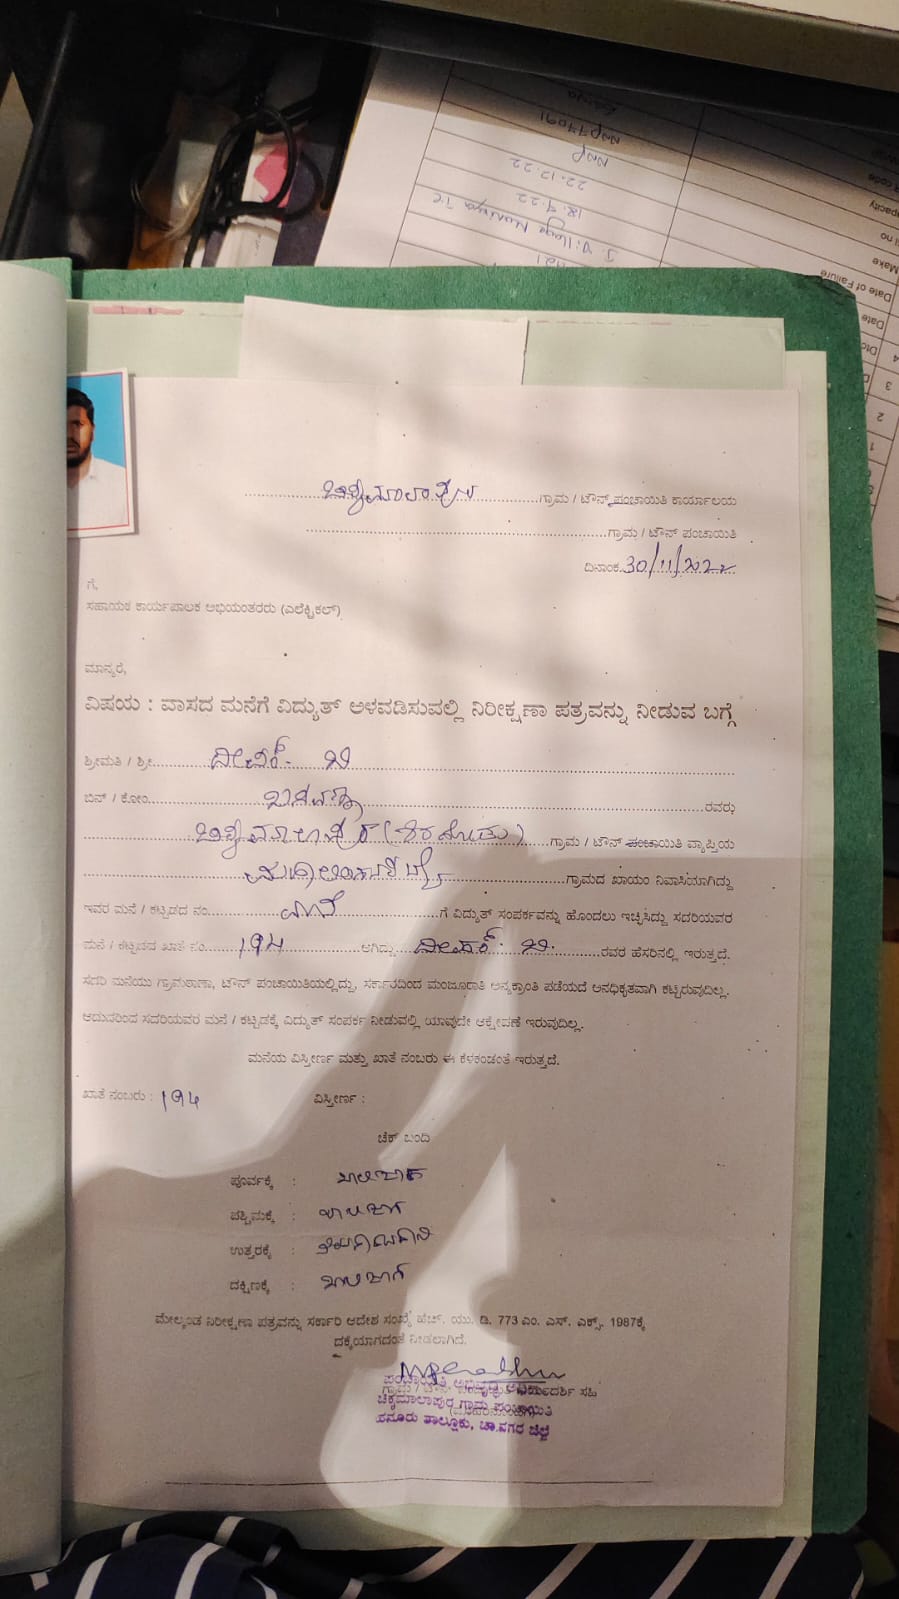 Kaniya
NNP77091
NNP
22.12.22
18.9.22
Date of Failure
Make
ಚಿಕ್ಕಮಾಲಾಪುರ ಗ್ರಾಮ / ಟೌನ್ ಪಂಚಾಯಿತಿ ಕಾರ್ಯಾಲಯ
ಗ್ರಾಮ / ಟೌನ್ ಪಂಚಾಯಿತಿ
ದಿನಾಂಕ 30/11/2022
ಗೆ,
ಸಹಾಯಕ ಕಾರ್ಯಪಾಲಕ ಅಭಿಯಂತರರು (ಎಲೆಕ್ಟ್ರಿಕಲ್)
ಮಾನ್ಯರೆ,
ವಿಷಯ : ವಾಸದ ಮನೆಗೆ ವಿದ್ಯುತ್ ಅಳವಡಿಸುವಲ್ಲಿ ನಿರೀಕ್ಷಣಾ ಪತ್ರವನ್ನು ನೀಡುವ ಬಗ್ಗೆ
ಶ್ರೀಮತಿ / ಶ್ರೀ
ಬಿನ್ / ಕೋಂ ಬಸವಣ್ಣ ರವರು
ಚಿಕ್ಕಮಾಲಾಪುರ ಗ್ರಾಮ / ಟೌನ್ ಪಂಚಾಯಿತಿ ವ್ಯಾಪ್ತಿಯ
ಗ್ರಾಮದ ಖಾಯಂ ನಿವಾಸಿಯಾಗಿದ್ದು
ಇವರ ಮನೆ / ಕಟ್ಟಡದ ನಂ. ಗೆ ವಿದ್ಯುತ್ ಸಂಪರ್ಕವನ್ನು ಹೊಂದಲು ಇಚ್ಛಿಸಿದ್ದು ಸದರಿಯವರ
ಮನೆ / ಕಟ್ಟಡದ ಖಾತೆ ನಂ. 194 ಆಗಿದ್ದು ರವರ ಹೆಸರಿನಲ್ಲಿ ಇರುತ್ತದೆ.
ಸದರಿ ಮನೆಯು ಗ್ರಾಮಠಾಣಾ, ಟೌನ್ ಪಂಚಾಯಿತಿಯಲ್ಲಿದ್ದು, ಸರ್ಕಾರದಿಂದ ಮಂಜೂರಾತಿ ಅನ್ಯಕ್ರಾಂತಿ ಪಡೆಯದೆ ಅನಧಿಕೃತವಾಗಿ ಕಟ್ಟಿರುವುದಿಲ್ಲ.
ಆದುದರಿಂದ ಸದರಿಯವರ ಮನೆ / ಕಟ್ಟಡಕ್ಕೆ ವಿದ್ಯುತ್ ಸಂಪರ್ಕ ನೀಡುವಲ್ಲಿ ಯಾವುದೇ ಆಕ್ಷೇಪಣೆ ಇರುವುದಿಲ್ಲ.
ಮನೆಯ ವಿಸ್ತೀರ್ಣ ಮತ್ತು ಖಾತೆ ನಂಬರು ಈ ಕೆಳಕಂಡಂತೆ ಇರುತ್ತದೆ.
ಖಾತೆ ನಂಬರು : 194 ವಿಸ್ತೀರ್ಣ :
ಚೆಕ್ ಬಂದಿ
ಪೂರ್ವಕ್ಕೆ : ಖಾಲಿಜಾಗ
ಪಶ್ಚಿಮಕ್ಕೆ : ಖಾಲಿಜಾಗ
ಉತ್ತರಕ್ಕೆ :
ದಕ್ಷಿಣಕ್ಕೆ : ಖಾಲಿಜಾಗ
ಮೇಲ್ಕಂಡ ನಿರೀಕ್ಷಣಾ ಪತ್ರವನ್ನು ಸರ್ಕಾರಿ ಆದೇಶ ಸಂಖ್ಯೆ ಹೆಚ್. ಯು. ಡಿ. 773 ಎಂ. ಎಸ್. ಎಕ್ಸ್. 1987ಕ್ಕೆ
ದಕ್ಕೆಯಾಗದಂತೆ ನೀಡಲಾಗಿದೆ.
ಪಂಚಾಯಿತಿ ಅಭಿವೃದ್ಧಿ
ಚಿಕ್ಕಮಾಲಾಪುರ ಗ್ರಾಮ ಪಂಚಾಯಿತಿ
ಹನೂರು ತಾಲ್ಲೂಕು, ಚಾ.ನಗರ ಜಿಲ್ಲೆ